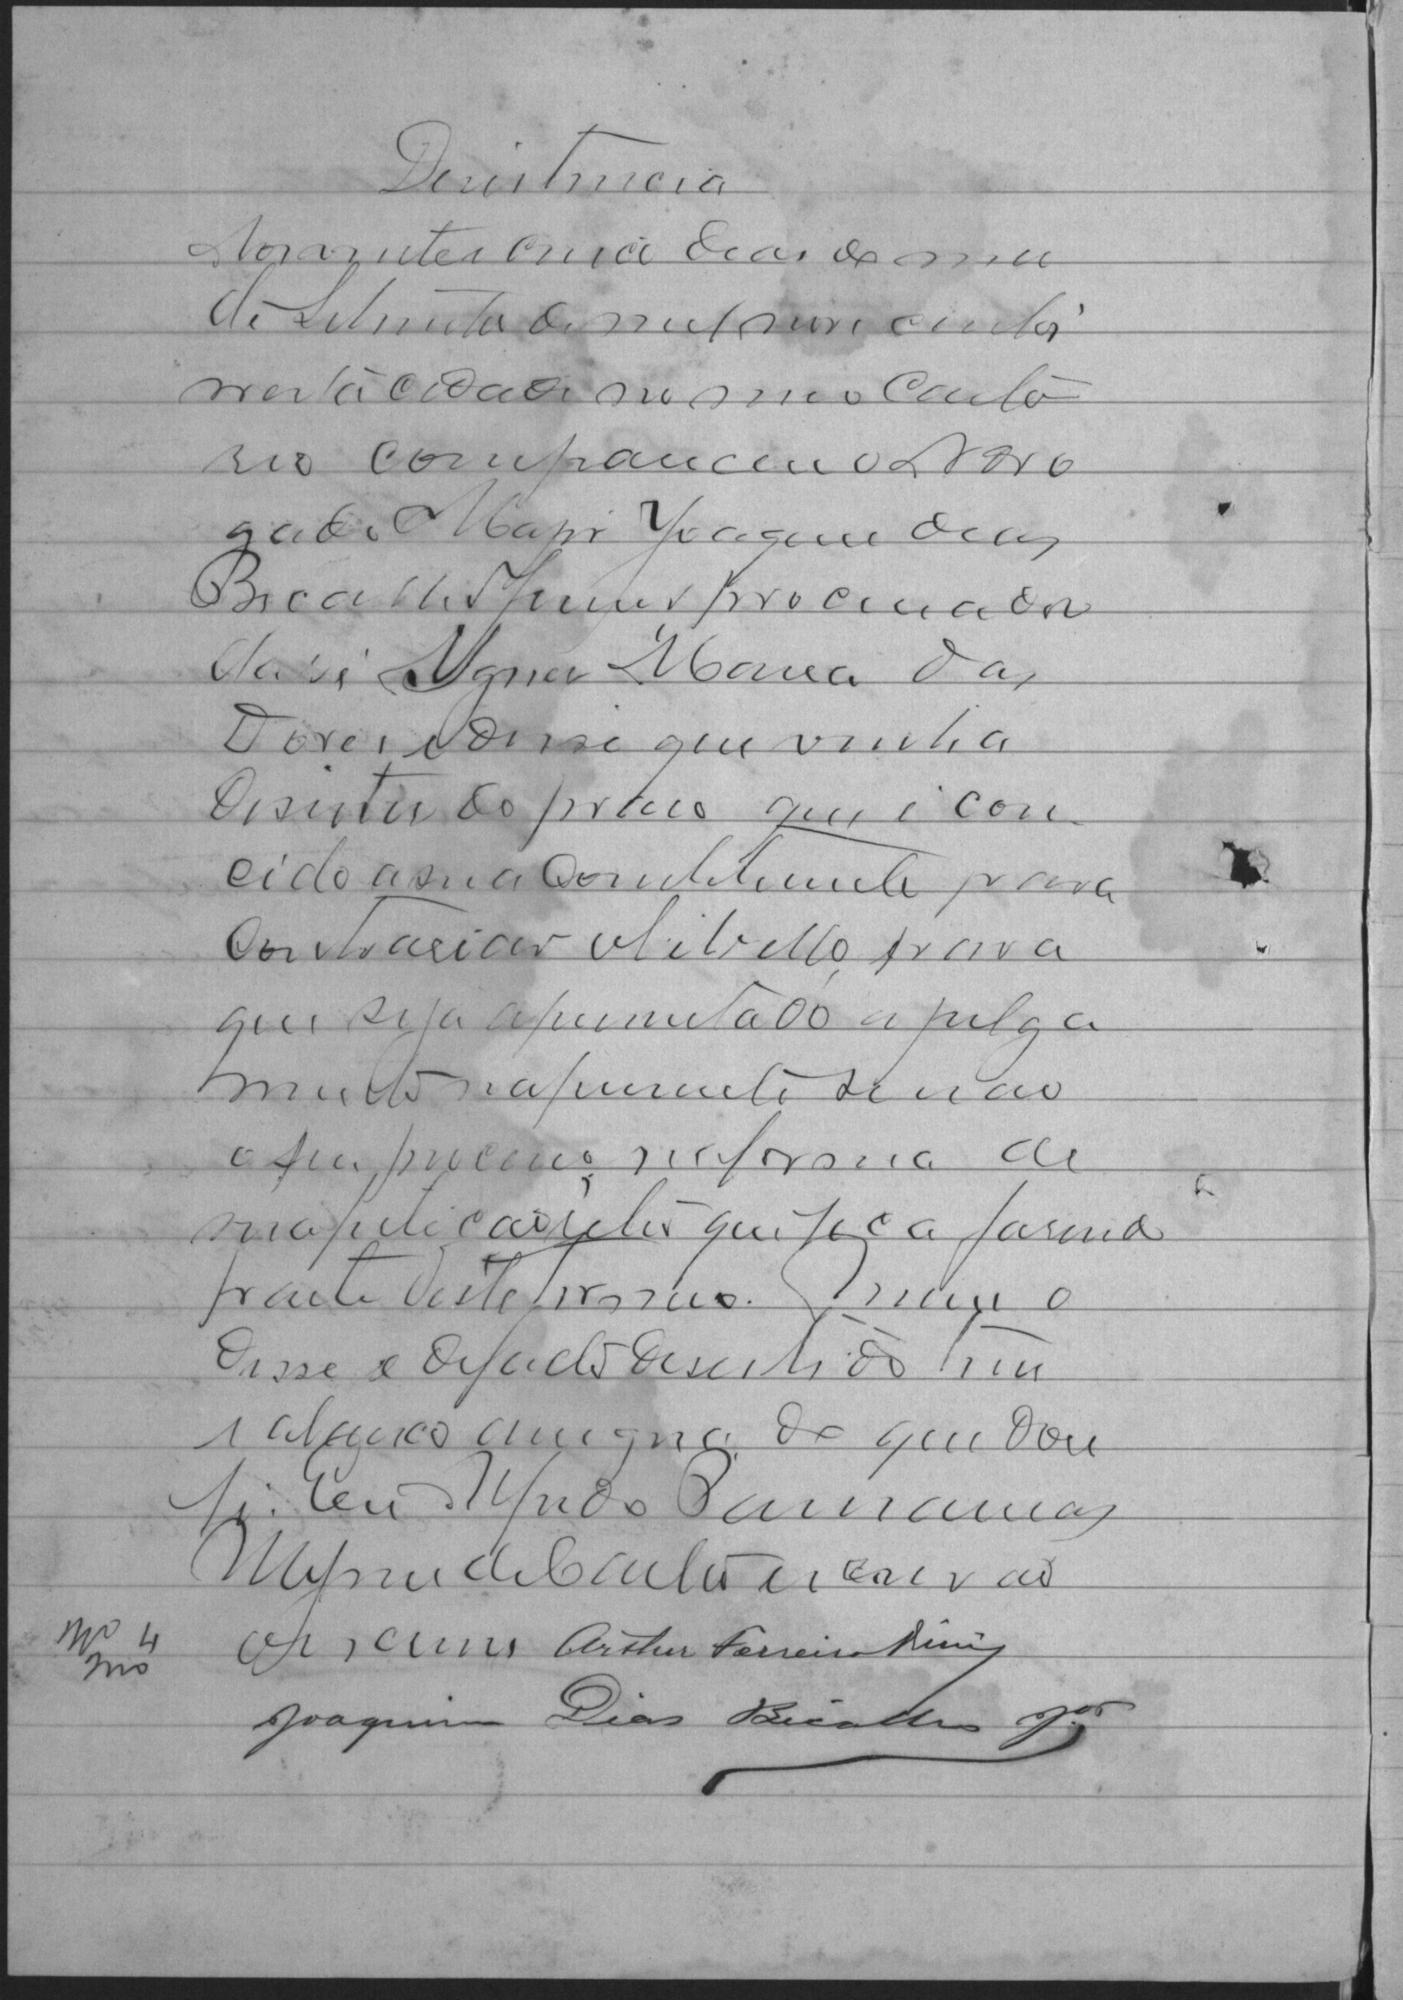 Desistencia
Aos vinte e cinco dias do mez
de Setembro de mil novecentos
nesta cidade no meo Carto
rio compareceu o Advo
gado Major Joaquim Dias
Bicalho Junior procurador
da ré Ignez Maria das
Dores e disse que vinha
desistir do praso que é con
cido a sua Constituinte para
contrariar o libello, para
que seja apresentado a julga
mento na presente sessão
o seu processo, na forma de
sua petição que fica fasendo
parte deste termo.
Disse e
de que dou
fé. Eu Alfredo
escrivão
o escrevi Arthur Ferreira Diniz
Joaquim Dias Bicalho Jor